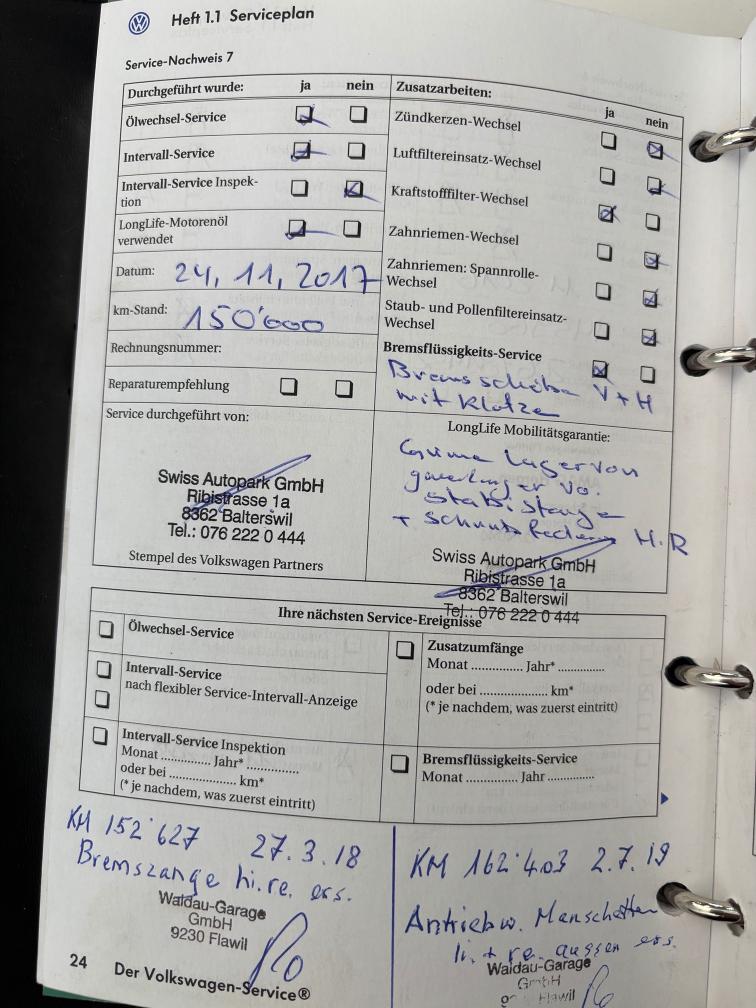 Heft 1.1 Serviceplan
Service-Nachweis 7
Durchgeführt wurde: ja nein
Ölwechsel-Service
Intervall-Service
Intervall-Service Inspek-
tion
LongLife-Motorenöl
verwendet
Datum: 24, 11, 2017
km-Stand: 150'000
Rechnungsnummer:
Reparaturempfehlung
Service durchgeführt von:
Swiss Autopark GmbH
Ribistrasse 1a
8362 Balterswil
Tel.: 076 222 0 444
Stempel des Volkswagen Partners
Zusatzarbeiten:
ja nein
Zündkerzen-Wechsel
Luftfiltereinsatz-Wechsel
Kraftstofffilter-Wechsel
Zahnriemen-Wechsel
Zahnriemen: Spannrolle-
Wechsel
Staub- und Pollenfiltereinsatz-
Wechsel
Bremsflüssigkeits-Service
Bremsscheibe V+H
mit Klötze
LongLife Mobilitätsgarantie:
Gumme Lager von
vo.
Stabistange
+ H.R
Swiss Autopark GmbH
Ribistrasse 1a
8362 Balterswil
Tel.: 076 222 0 444
Ihre nächsten Service-Ereignisse
Ölwechsel-Service
Intervall-Service
nach flexibler Service-Intervall-Anzeige
Intervall-Service Inspektion
Monat .............. Jahr* ...............
oder bei .................... km*
(* je nachdem, was zuerst eintritt)
Zusatzumfänge
Monat ............... Jahr* .............
oder bei .................... km*
(* je nachdem, was zuerst eintritt)
Bremsflüssigkeits-Service
Monat ............... Jahr ..............
KM 152'627 27.3.18
Bremszange hi.re. ers.
Waldau-Garage
GmbH
9230 Flawil
KM 162'403 2.7.19
Antriebw. Manschetten
li. + re. aussen ers.
Waldau-Garage
GmbH
Flawil
24 Der Volkswagen-Service®